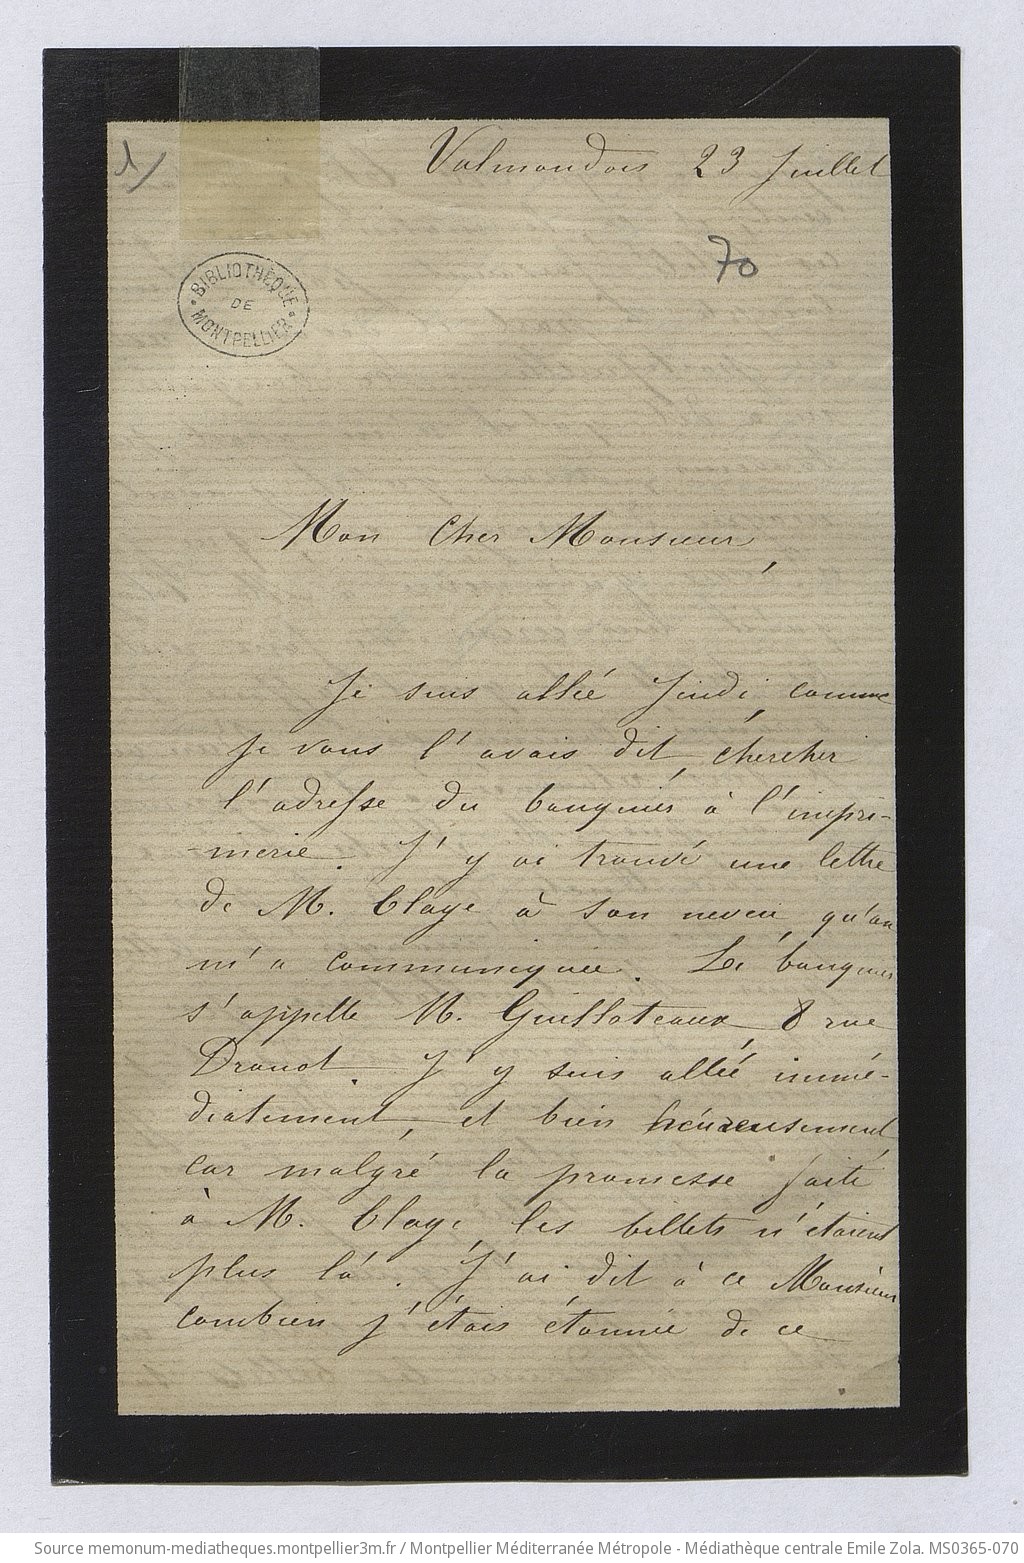 1/
Valmondois 23 Juillet
70
BIBLIOTHÈQUE
DE
MONTPELLIER
Mon Cher Monsieur,
Je suis allée Jeudi, comme
je vous l'avais dit, chercher
l'adresse du banquier à l'impri-
-merie. J'y ai trouvé une lettre
de M. Claye à son neveu, qu'on
m'a communiquée. Le banquier
s'appelle M. Guilloteaux, 8 rue
Drouot. J'y suis allée immé-
diatement, et bien heureusement,
car malgré la promesse faite
à M. Claye, les billets n'étaient
plus là. J'ai dit à ce Monsieur
combien j'étais étonnée de ce
Source memonum-mediatheques.montpellier3m.fr / Montpellier Méditerranée Métropole - Médiathèque centrale Emile Zola. MS0365-070